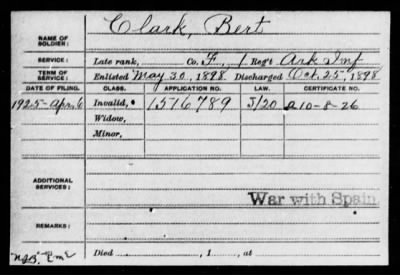 NAME OF SOLDIER: Clark, Bert
SERVICE: Late rank, Co. F, 1 Reg't Ark Inf
TERM OF SERVICE: Enlisted May 30, 1898 Discharged Oct. 25, 1898
DATE OF FILING. CLASS. APPLICATION NO. LAW. CERTIFICATE NO.
1925-Apr. 6 Invalid, 1516789 J/20 A 10-8-26
Widow,
Minor,
ADDITIONAL SERVICES:
War with Spain
REMARKS:
Died , 1 , at